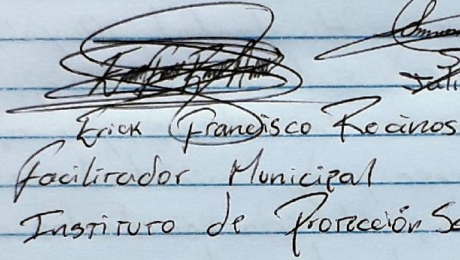 Erick Francisco Recinos
Facilitador Municipal
Instituto de Protección